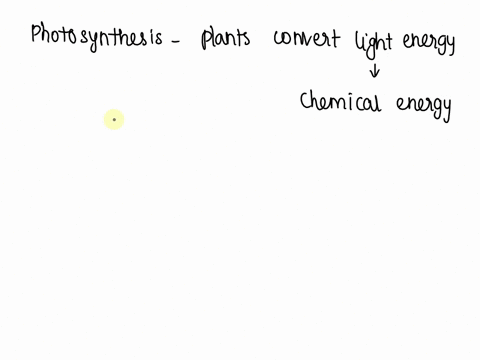 Photosynthesis - plants convert light energy
↓
Chemical energy